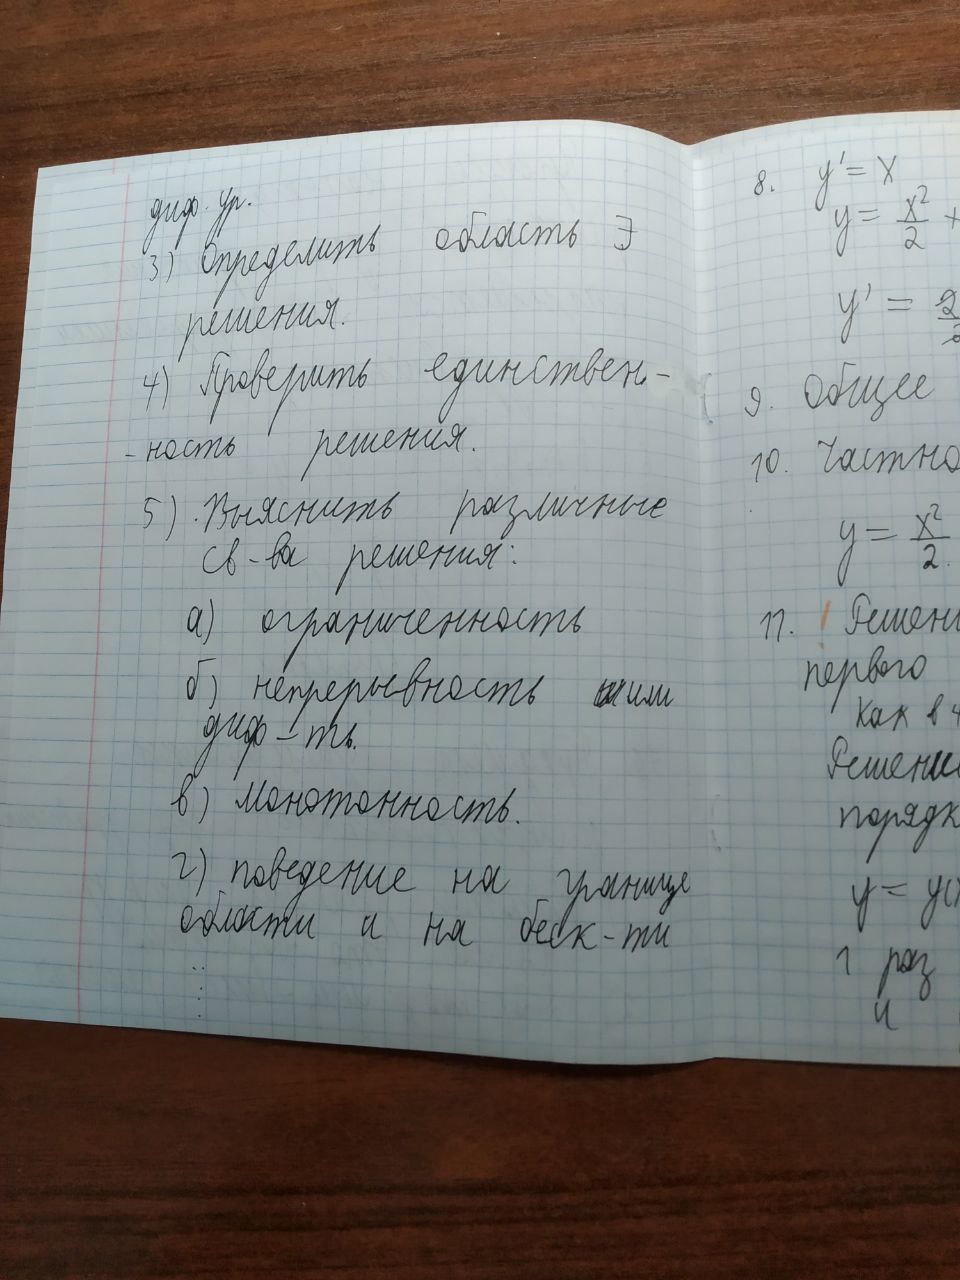 диф. ур.
3) Определить область ∃
решения.
4) Проверить единствен-
-ность решения.
5) Выяснить различные
св-ва решения:
а) ограниченность
б) непрерывность или
диф-ть.
в) монотонность.
г) поведение на границе
области и на беск-ти
8. y' = x
y = x²/2 +
y' = 2
9. Общее
10. Частно
y = x²/2
11. ! Решени
первого
Как в
Решение
порядк
y = y(
1 раз
и